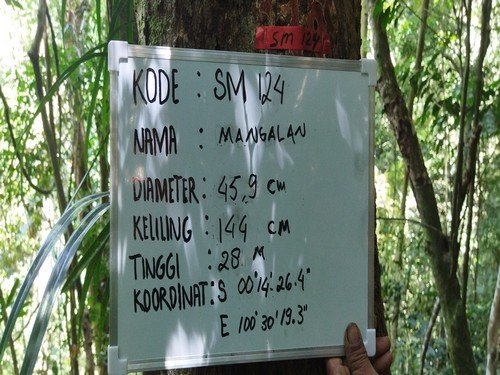 SM 124
KODE : SM 124
NAMA : MANGALAN
DIAMETER : 45,9 CM
KELILING : 144 CM
TINGGI : 28 M
KOORDINAT : S 00°14'.26.4"
E 100°30'19.3"